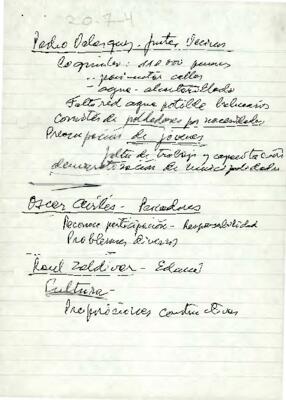 20-7-4
Pedro Velasquez - Juntas Vecinos
Coquimbo: 110.000 personas
.. pavimentar calles
- agua - alcantarillado
Falta red agua potible balnearios
Comités de pobladores por necesidades
Preocupación de jóvenes
falta de trabajo y capacitación
democratización de municipalidades
Oscar Avilés - Pescadores
Reconoce participación - Responsabilidad
Problemas diversos
Raul Zaldivar -
Cultura -
Proposiciones constructivas